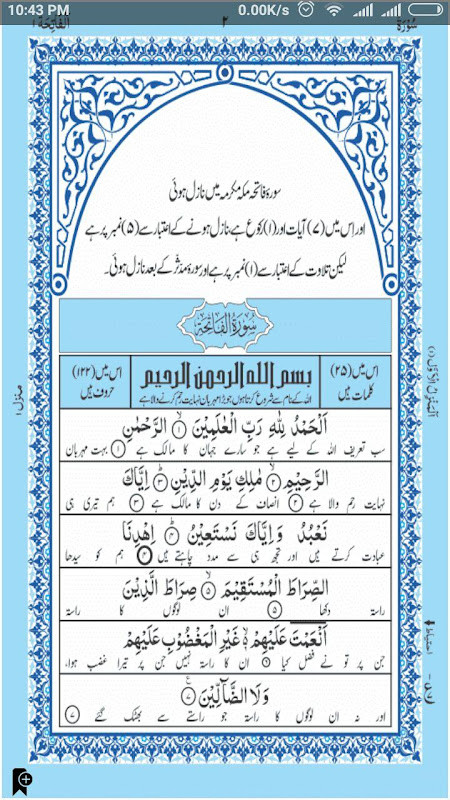 10:43 PM 0.00K/s
سُوْرَة ٢ الفَاتِحَة ١
سورۂ فاتحہ مکہ مکرمہ میں نازل ہوئی
اور اِس میں (۷) آیات اور (۱) رکوع ہے، نازل ہونے کے اعتبار سے (۵) نمبر پر ہے
لیکن تلاوت کے اعتبار سے (۱) نمبر پر ہے اور سورۂ مدثر کے بعد نازل ہوئی۔
سُوْرَةُ الْفَاتِحَة
اس میں (۲۵) کلمات ہیں
بسم الله الرحمن الرحيم
اللہ کے نام سے شروع کرتا ہوں جو بڑا مہربان نہایت رحم کرنے والا ہے
اس میں (۱۲۲) حروف ہیں
اَلْحَمْدُ لِلّٰهِ رَبِّ الْعٰلَمِيْنَ ۙ۱ الرَّحْمٰنِ
سب تعریف اللہ کے لیے ہے جو سارے جہان کا مالک ہے ۱ بہت مہربان
الرَّحِيْمِ ۙ۲ مٰلِكِ يَوْمِ الدِّيْنِ ؕ۳ اِيَّاكَ
نہایت رحم والا ہے ۲ انصاف کے دن کا مالک ہے ۳ ہم تیری ہی
نَعْبُدُ وَاِيَّاكَ نَسْتَعِيْنُ ؕ۴ اِهْدِنَا
عبادت کرتے ہیں اور تجھ ہی سے مدد چاہتے ہیں ۴ ہم کو سیدھا
الصِّرَاطَ الْمُسْتَقِيْمَ ۙ۵ صِرَاطَ الَّذِيْنَ
راستہ دکھا ۵ ان لوگوں کا راستہ
اَنْعَمْتَ عَلَيْهِمْ ۙ۬۶ غَيْرِ الْمَغْضُوْبِ عَلَيْهِمْ
جن پر تو نے فضل کیا ۶ ان کا راستہ نہیں جن پر تیرا غضب ہوا،
وَلَا الضَّآلِّيْنَ ۧ۷
اور نہ ان لوگوں کا راستہ جو راستے سے بھٹک گئے ۷
منزل ۱
احتیاط